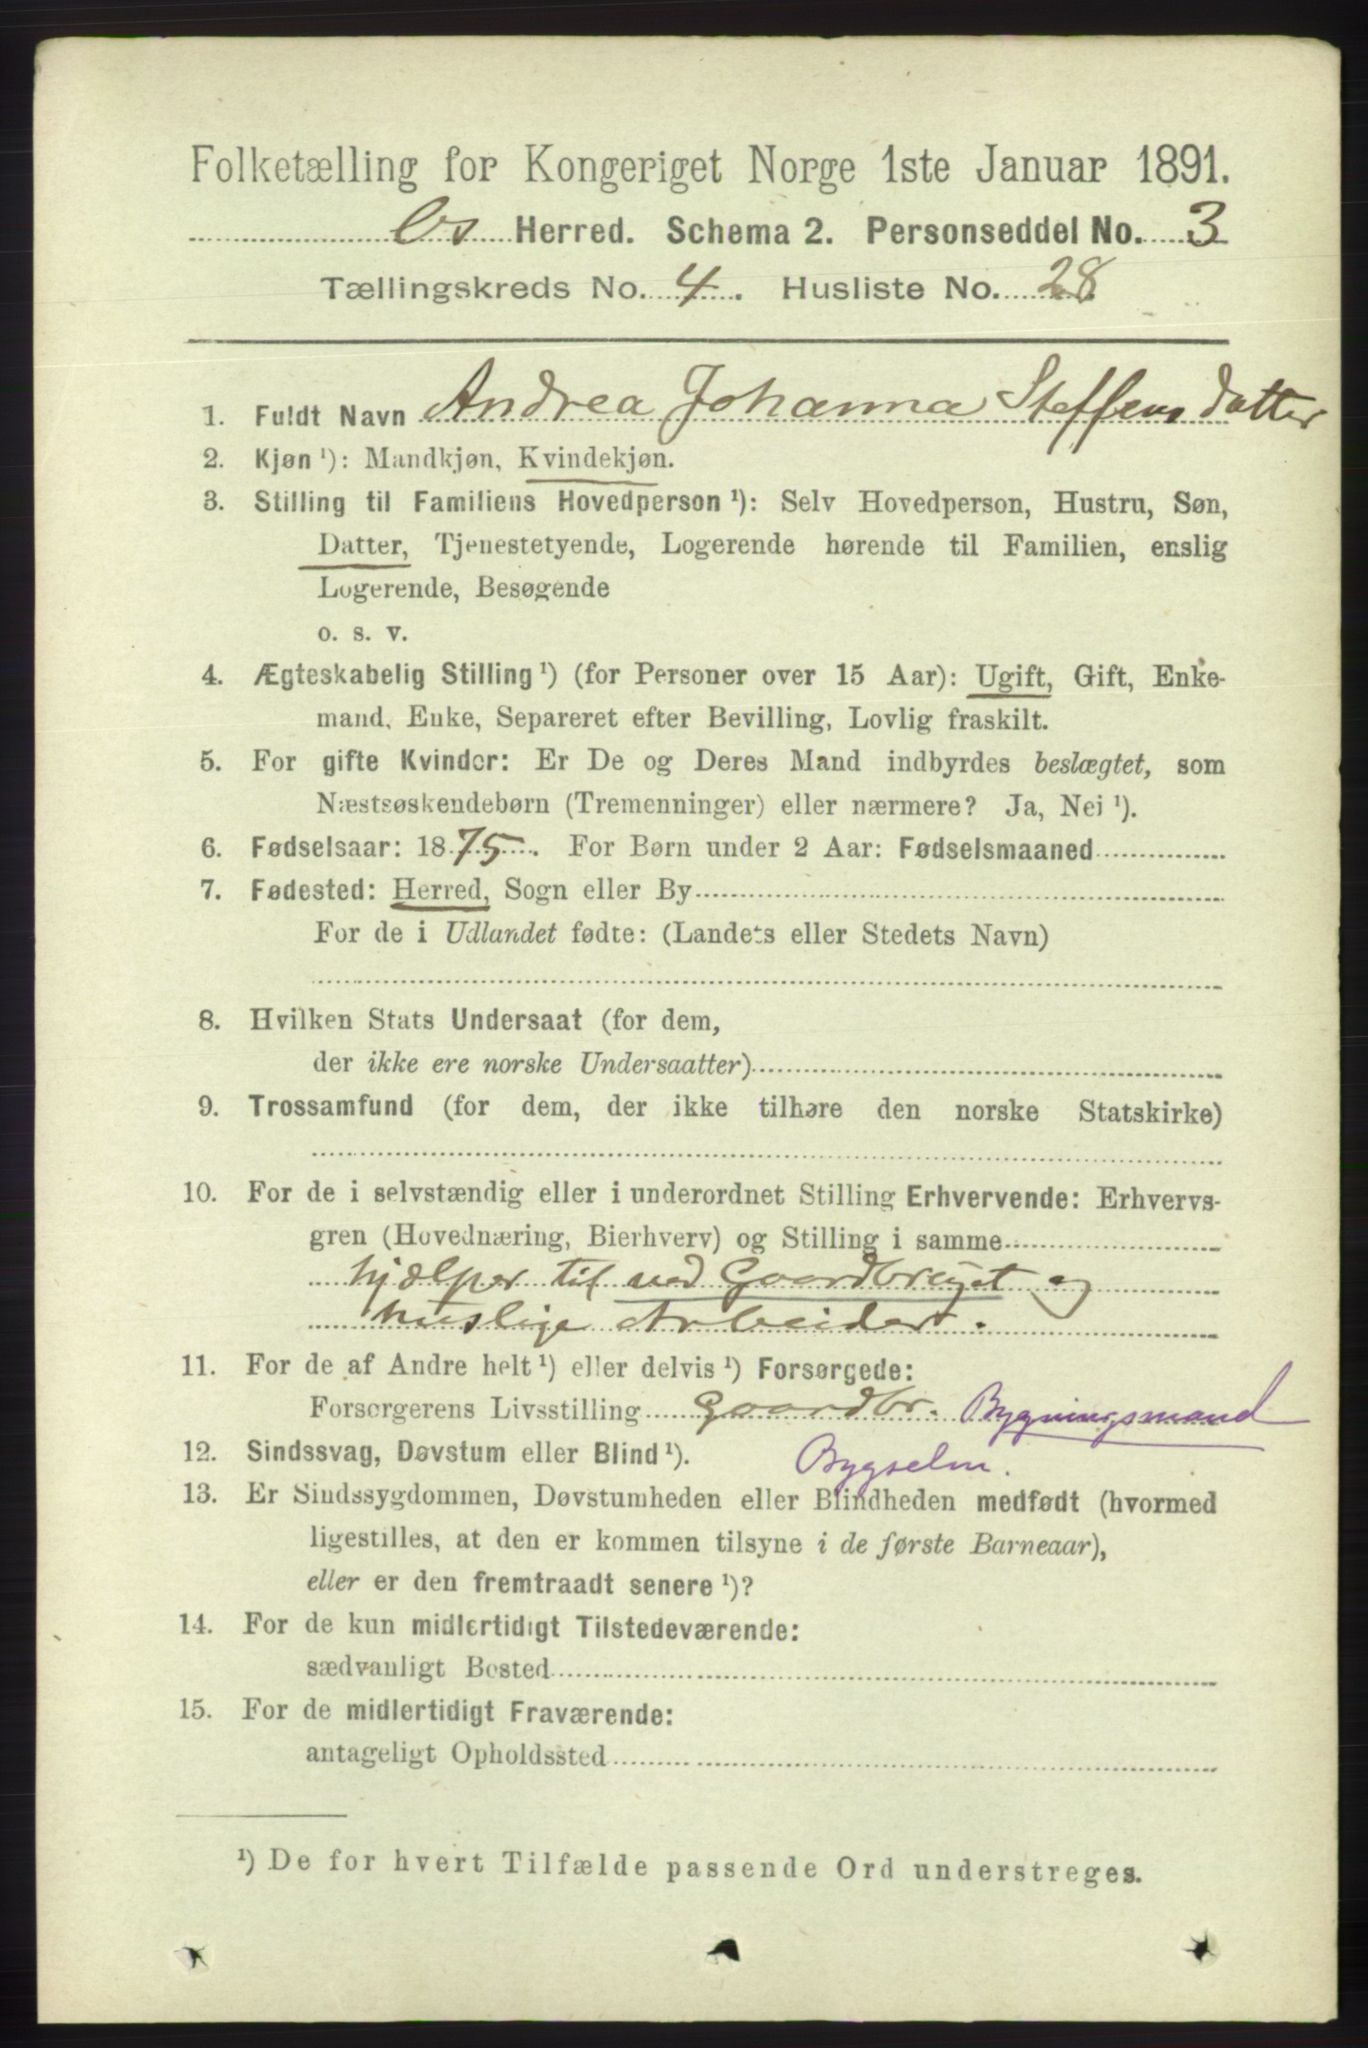 Folketælling for Kongeriget Norge 1ste Januar 1891.
Os Herred. Schema 2. Personseddel No. 3
Tællingskreds No. 4. Husliste No. 28.
1. Fuldt Navn Andrea Johanna Steffensdatter
2. Kjøn ¹): Mandkjøn, Kvindekjøn.
3. Stilling til Familiens Hovedperson ¹): Selv Hovedperson, Hustru, Søn,
Datter, Tjenestetyende, Logerende hørende til Familien, enslig
Logerende, Besøgende
o. s. v.
4. Ægteskabelig Stilling ¹) (for Personer over 15 Aar): Ugift, Gift, Enke-
mand, Enke, Separeret efter Bevilling, Lovlig fraskilt.
5. For gifte Kvinder: Er De og Deres Mand indbyrdes beslægtet, som
Næstsøskendebørn (Tremenninger) eller nærmere? Ja, Nei ¹).
6. Fødselsaar: 1875. For Børn under 2 Aar: Fødselsmaaned
7. Fødested: Herred, Sogn eller By
For de i Udlandet fødte: (Landets eller Stedets Navn)
8. Hvilken Stats Undersaat (for dem,
der ikke ere norske Undersaatter)
9. Trossamfund (for dem, der ikke tilhøre den norske Statskirke)
10. For de i selvstændig eller i underordnet Stilling Erhvervende: Erhvervs-
gren (Hovednæring, Bierhverv) og Stilling i samme
hjælper til ved Gaardbruget og
huslige Arbeider.
11. For de af Andre helt ¹) eller delvis ¹) Forsørgede:
Forsørgerens Livsstilling Gaardbr. Bygningsmand
12. Sindssvag, Døvstum eller Blind ¹). Bygselm.
13. Er Sindssygdommen, Døvstumheden eller Blindheden medfødt (hvormed
ligestilles, at den er kommen tilsyne i de første Barneaar),
eller er den fremtraadt senere ¹)?
14. For de kun midlertidigt Tilstedeværende:
sædvanligt Bosted
15. For de midlertidigt Fraværende:
antageligt Opholdssted
¹) De for hvert Tilfælde passende Ord understreges.